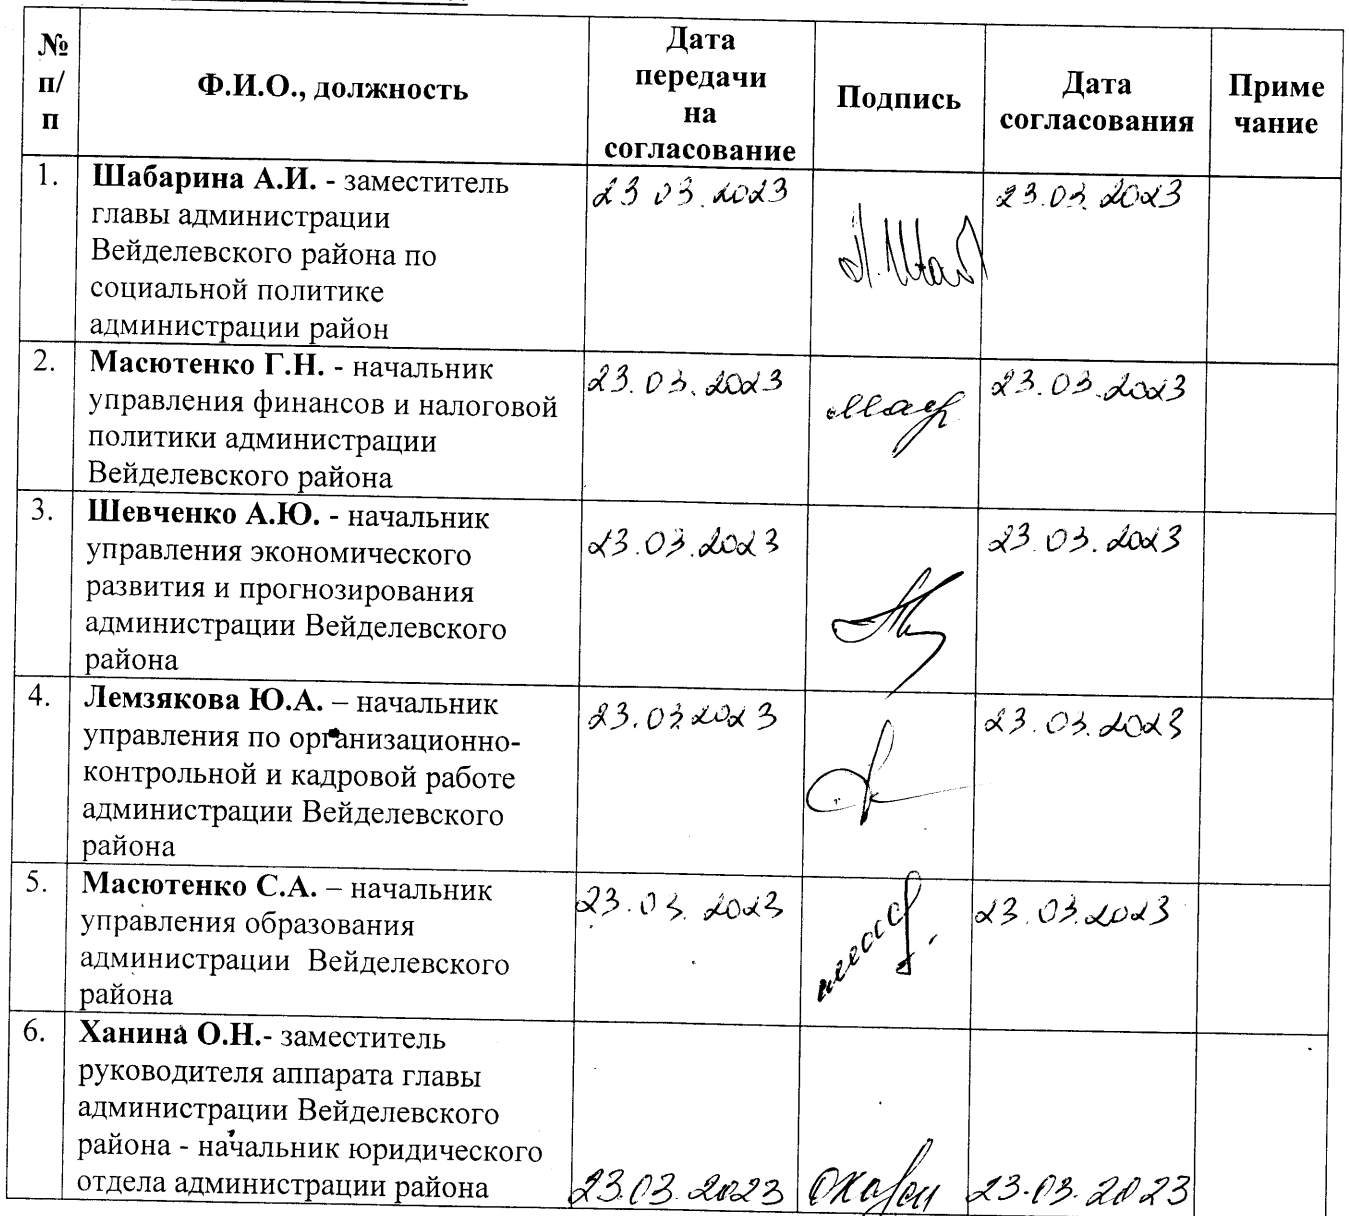 № п/п
Ф.И.О., должность
Дата
передачи
на
согласование
Подпись
Дата
согласования
Приме
чание
1.
Шабарина А.И. - заместитель
главы администрации
Вейделевского района по
социальной политике
администрации район
23 03.2023
23.03.2023
2.
Масютенко Г.Н. - начальник
управления финансов и налоговой
политики администрации
Вейделевского района
23.03.2023
23.03.2023
3.
Шевченко А.Ю. - начальник
управления экономического
развития и прогнозирования
администрации Вейделевского
района
23.03.2023
23.03.2023
4.
Лемзякова Ю.А. – начальник
управления по организационно-
контрольной и кадровой работе
администрации Вейделевского
района
23.03.2023
23.03.2023
5.
Масютенко С.А. – начальник
управления образования
администрации Вейделевского
района
23.03.2023
23.03.2023
6.
Ханина О.Н.- заместитель
руководителя аппарата главы
администрации Вейделевского
района - начальник юридического
отдела администрации района
23.03.2023
23.03.2023